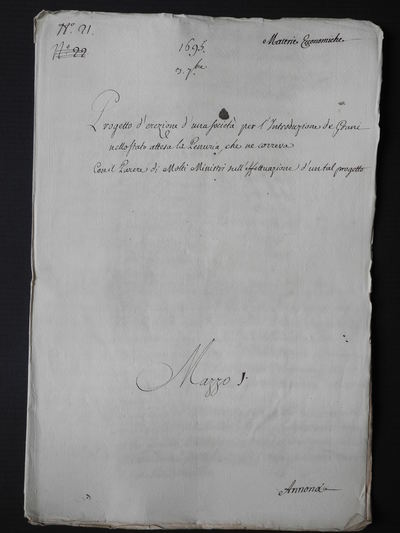 N.º 21.
N.º 22
Materie Economiche
1695.
3. 7.bre
Progetto d'erezione d'una società per l'Introduzione de Grani
nello stato attesa la Penuria, che ne correva
Con il Parere di Molti Ministri sull'effettuazione d'un tal progetto
Mazzo 1.
Annona